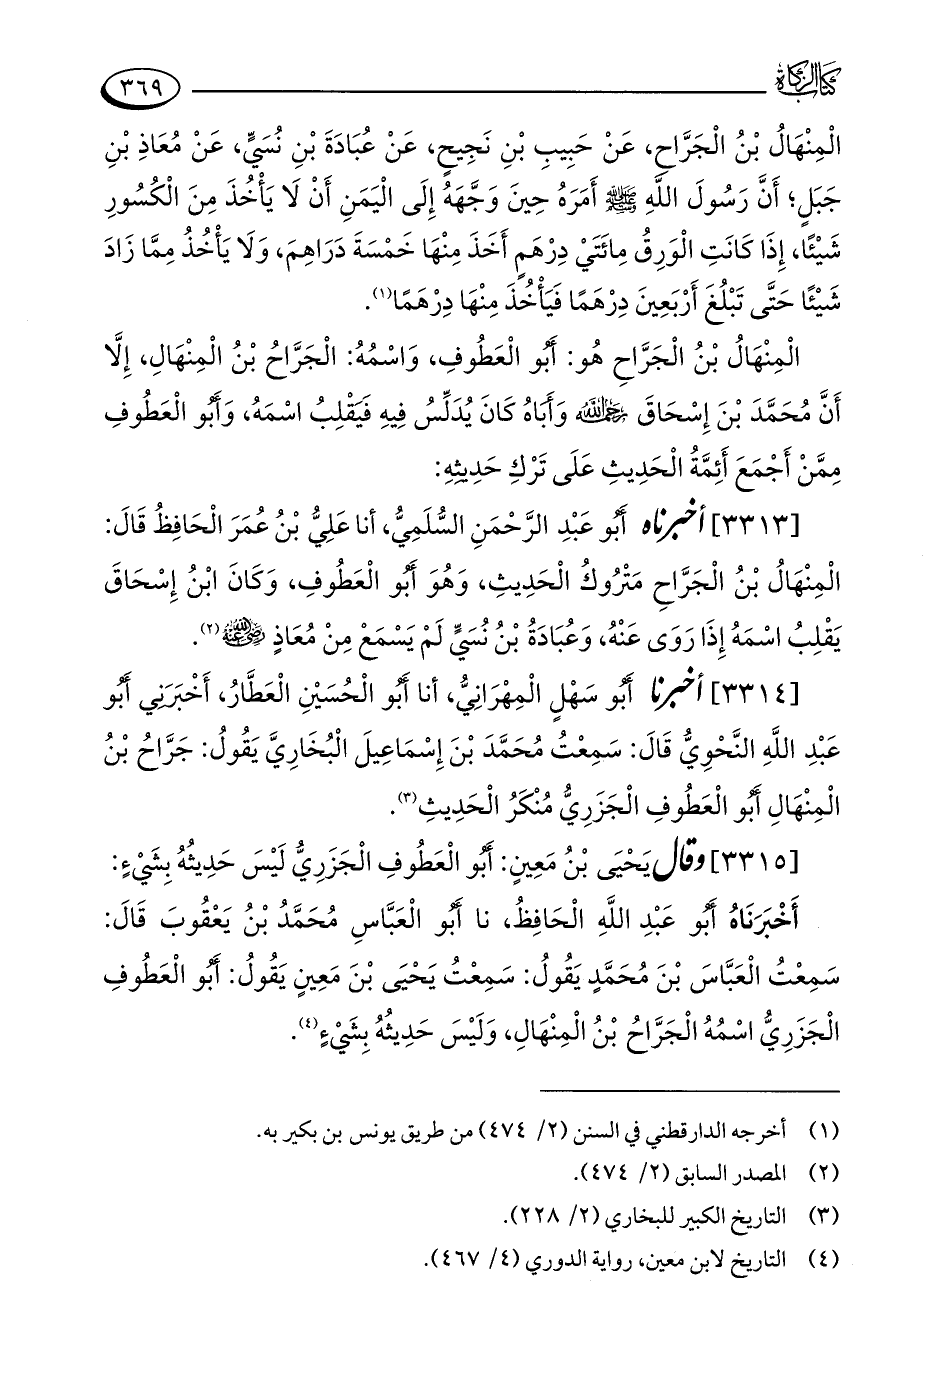 كتاب الزكاة ٣٦٩
الْمِنْهَالُ بْنُ الْجَرَّاحِ، عَنْ حَبِيبِ بْنِ نَجِيحٍ، عَنْ عُبَادَةَ بْنِ نُسَيٍّ، عَنْ مُعَاذِ بْنِ
جَبَلٍ؛ أَنَّ رَسُولَ اللَّهِ ﷺ أَمَرَهُ حِينَ وَجَّهَهُ إِلَى الْيَمَنِ أَنْ لَا يَأْخُذَ مِنَ الْكُسُورِ
شَيْئًا، إِذَا كَانَتِ الْوَرِقُ مِائَتَيْ دِرْهَمٍ أَخَذَ مِنْهَا خَمْسَةَ دَرَاهِمَ، وَلَا يَأْخُذُ مِمَّا زَادَ
شَيْئًا حَتَّى تَبْلُغَ أَرْبَعِينَ دِرْهَمًا فَيَأْخُذَ مِنْهَا دِرْهَمًا(١).
الْمِنْهَالُ بْنُ الْجَرَّاحِ هُوَ: أَبُو الْعَطُوفِ، وَاسْمُهُ: الْجَرَّاحُ بْنُ الْمِنْهَالِ، إِلَّا
أَنَّ مُحَمَّدَ بْنَ إِسْحَاقَ رحمه الله وَأَبَاهُ كَانَ يُدَلِّسُ فِيهِ فَيَقْلِبُ اسْمَهُ، وَأَبُو الْعَطُوفِ
مِمَّنْ أَجْمَعَ أَئِمَّةُ الْحَدِيثِ عَلَى تَرْكِ حَدِيثِهِ:
[٣٣١٣] أخبرناه أَبُو عَبْدِ الرَّحْمَنِ السُّلَمِيُّ، أنا عَلِيُّ بْنُ عُمَرَ الْحَافِظُ قَالَ:
الْمِنْهَالُ بْنُ الْجَرَّاحِ مَتْرُوكُ الْحَدِيثِ، وَهُوَ أَبُو الْعَطُوفِ، وَكَانَ ابْنُ إِسْحَاقَ
يَقْلِبُ اسْمَهُ إِذَا رَوَى عَنْهُ، وَعُبَادَةُ بْنُ نُسَيٍّ لَمْ يَسْمَعْ مِنْ مُعَاذٍ رضي الله عنه(٢).
[٣٣١٤] أخبرنا أَبُو سَهْلٍ الْمِهْرَانِيُّ، أنا أَبُو الْحُسَيْنِ الْعَطَّارُ، أَخْبَرَنِي أَبُو
عَبْدِ اللَّهِ النَّحْوِيُّ قَالَ: سَمِعْتُ مُحَمَّدَ بْنَ إِسْمَاعِيلَ الْبُخَارِيَّ يَقُولُ: جَرَّاحُ بْنُ
الْمِنْهَالِ أَبُو الْعَطُوفِ الْجَزَرِيُّ مُنْكَرُ الْحَدِيثِ(٣).
[٣٣١٥] وقال يَحْيَى بْنُ مَعِينٍ: أَبُو الْعَطُوفِ الْجَزَرِيُّ لَيْسَ حَدِيثُهُ بِشَيْءٍ:
أَخْبَرَنَاهُ أَبُو عَبْدِ اللَّهِ الْحَافِظُ، نا أَبُو الْعَبَّاسِ مُحَمَّدُ بْنُ يَعْقُوبَ قَالَ:
سَمِعْتُ الْعَبَّاسَ بْنَ مُحَمَّدٍ يَقُولُ: سَمِعْتُ يَحْيَى بْنَ مَعِينٍ يَقُولُ: أَبُو الْعَطُوفِ
الْجَزَرِيُّ اسْمُهُ الْجَرَّاحُ بْنُ الْمِنْهَالِ، وَلَيْسَ حَدِيثُهُ بِشَيْءٍ(٤).
(١) أخرجه الدارقطني في السنن (٢/ ٤٧٤) من طريق يونس بن بكير به.
(٢) المصدر السابق (٢/ ٤٧٤).
(٣) التاريخ الكبير للبخاري (٢/ ٢٢٨).
(٤) التاريخ لابن معين، رواية الدوري (٤/ ٤٦٧).